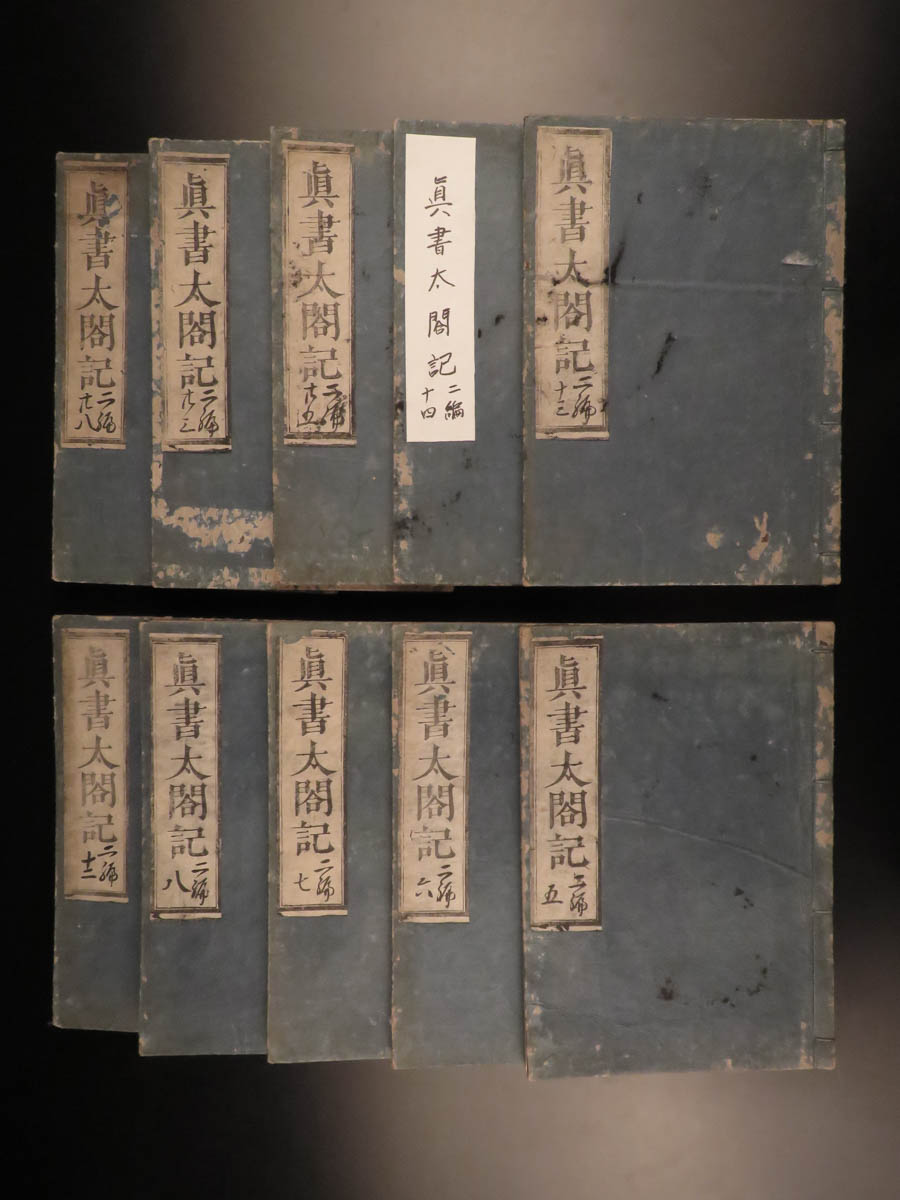 眞書太閤記
二編
十三
眞書太閤記
二編
十四
眞書太閤記
二編
廿五
眞書太閤記
二編
廿三
眞書太閤記
二編
廿八
眞書太閤記
二編
五
眞書太閤記
二編
六
眞書太閤記
二編
七
眞書太閤記
二編
八
眞書太閤記
二編
十二